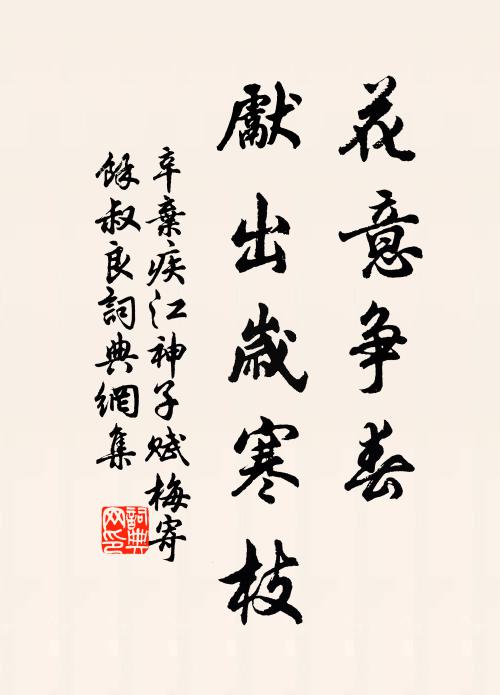 花意争春
獻出歲寒枝
辛棄疾江神子賦梅寄
餘叔良詞典網集
詞典
网印